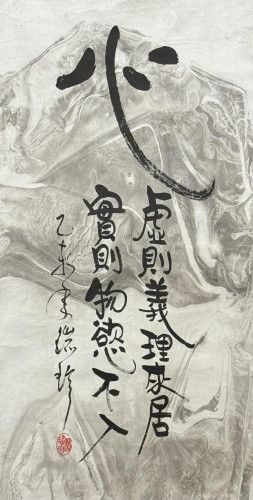 心
虛則義理來居
實則物慾不入
乙未年瑞玲